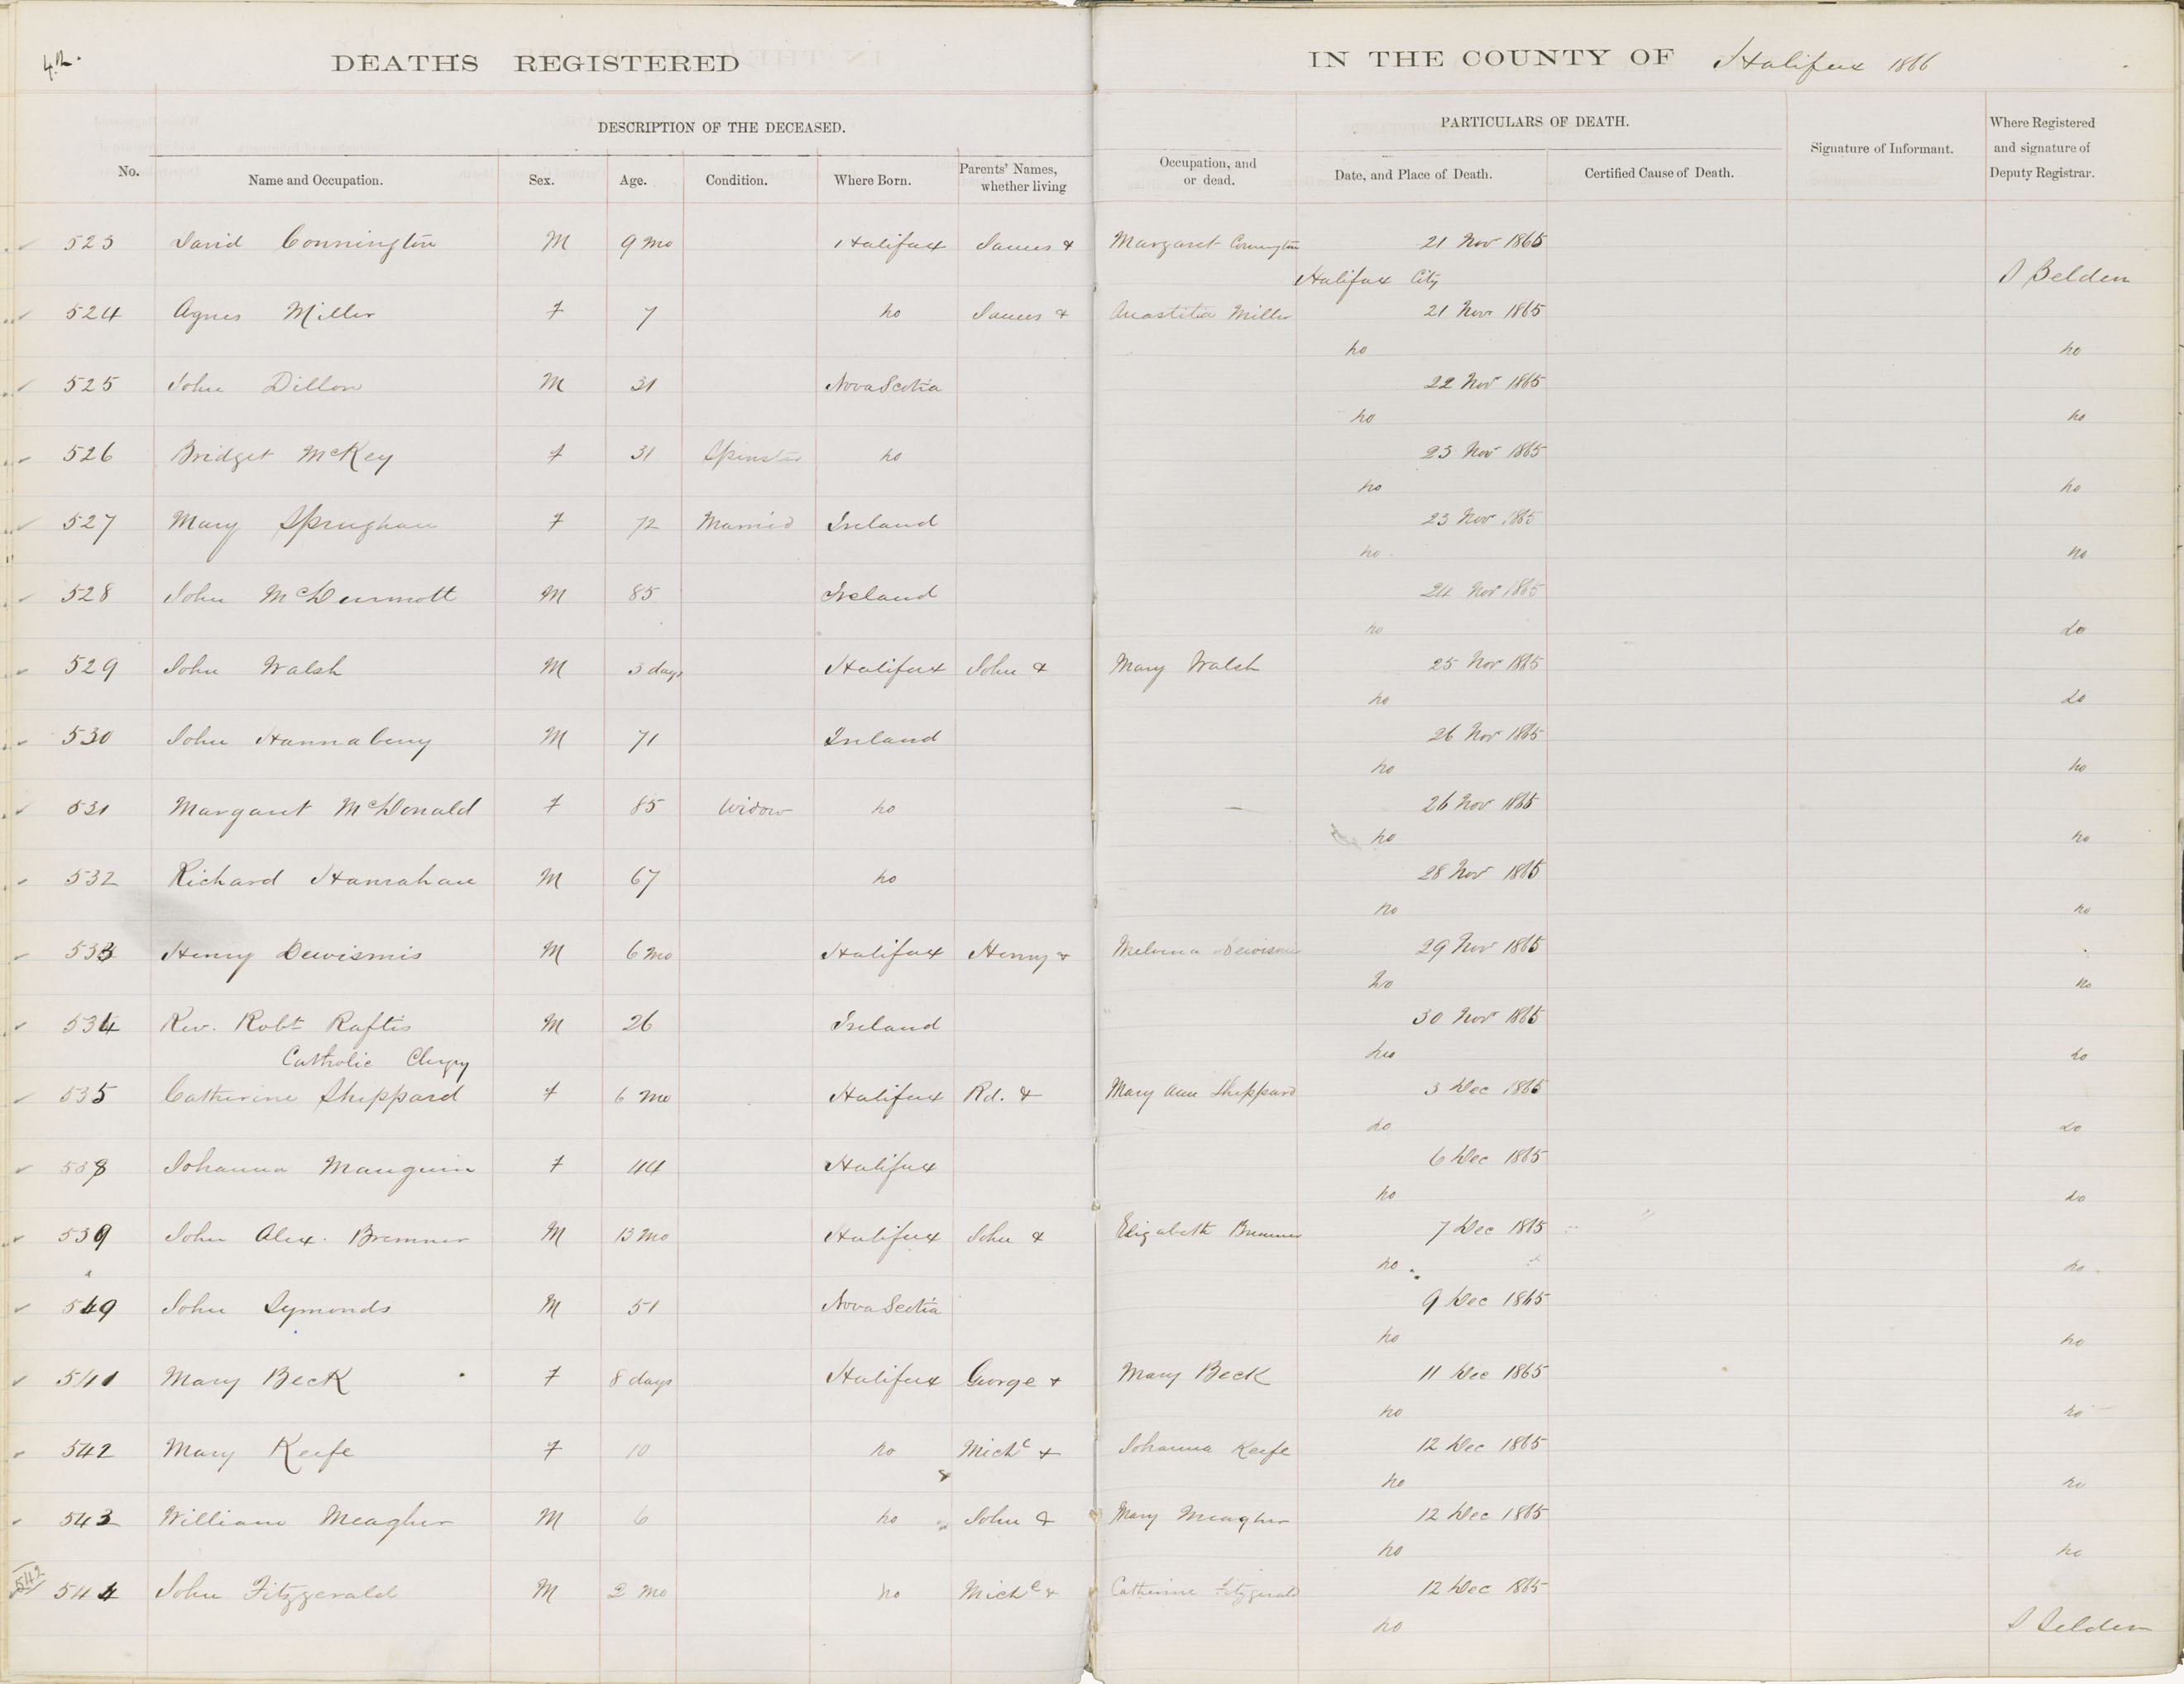 42.
DEATHS REGISTERED IN THE COUNTY OF Halifax 1866
DESCRIPTION OF THE DECEASED. PARTICULARS OF DEATH.
No. Name and Occupation. Sex. Age. Condition. Where Born. Parents' Names, whether living Occupation, and or dead. Date, and Place of Death. Certified Cause of Death. Signature of Informant. Where Registered and signature of Deputy Registrar.
523 David Connington M 9 mo Halifax James & Margaret Connington 21 Nov 1865
Halifax City S Selden
524 Agnes Miller F 7 Do James & Anastitia Miller 21 Nov 1865
Do Do
525 John Dillon M 31 Nova Scotia 22 Nov 1865
Do Do
526 Bridget McKey F 31 Spinster Do 23 Nov 1865
Do Do
527 Mary Sprughan F 72 Married Ireland 23 Nov 1865
Do Do
528 John McDermott M 85 Ireland 24 Nov 1865
Do Do
529 John Walsh M 3 days Halifax John & Mary Walsh 25 Nov 1865
Do Do
530 John Hannabery M 71 Ireland 26 Nov 1865
Do Do
531 Margaret McDonald F 85 Widow Do — 26 Nov 1865
Do Do
532 Richard Hanrahan M 67 Do 28 Nov 1865
Do Do
533 Henry Dewismis M 6 mo Halifax Henry & Melvina Dewismis 29 Nov 1865
Do Do
534 Rev. Robt Raftis M 26 Ireland 30 Nov 1865
Catholic Clergy Do Do
535 Catherine Sheppard F 6 mo Halifax Rd. & Mary Ann Sheppard 3 Dec 1865
Do Do
538 Johanna Mauguin F 44 Halifax 6 Dec 1865
Do Do
539 John Alex. Bremner M 13 mo Halifax John & Elizabeth Bremner 7 Dec 1865
Do Do
John Symonds M 51 Nova Scotia 9 Dec 1865
Do Do
541 Mary Beck F 8 days Halifax George & Mary Beck 11 Dec 1865
Do Do
542 Mary Keefe F 10 Do Michl & Johanna Keefe 12 Dec 1865
Do Do
543 William Meagher M 6 Do John & Mary Meagher 12 Dec 1865
Do Do
542
544 John Fitzgerald M 2 mo Do Michl & Catherine Fitzgerald 12 Dec 1865
Do S Selden